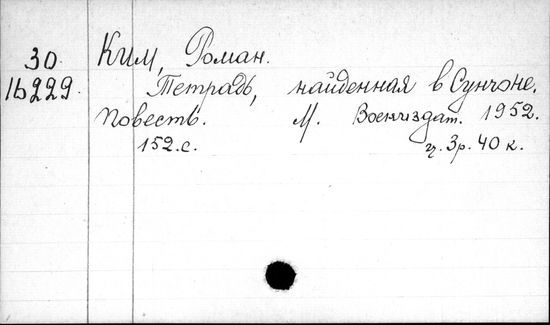 30
Ким, Роман.
1Б229.
Тетрадь, найденная в Сунчоне.
Повесть. М. Воениздат. 1952.
152.с. ц. 3р. 40 к.